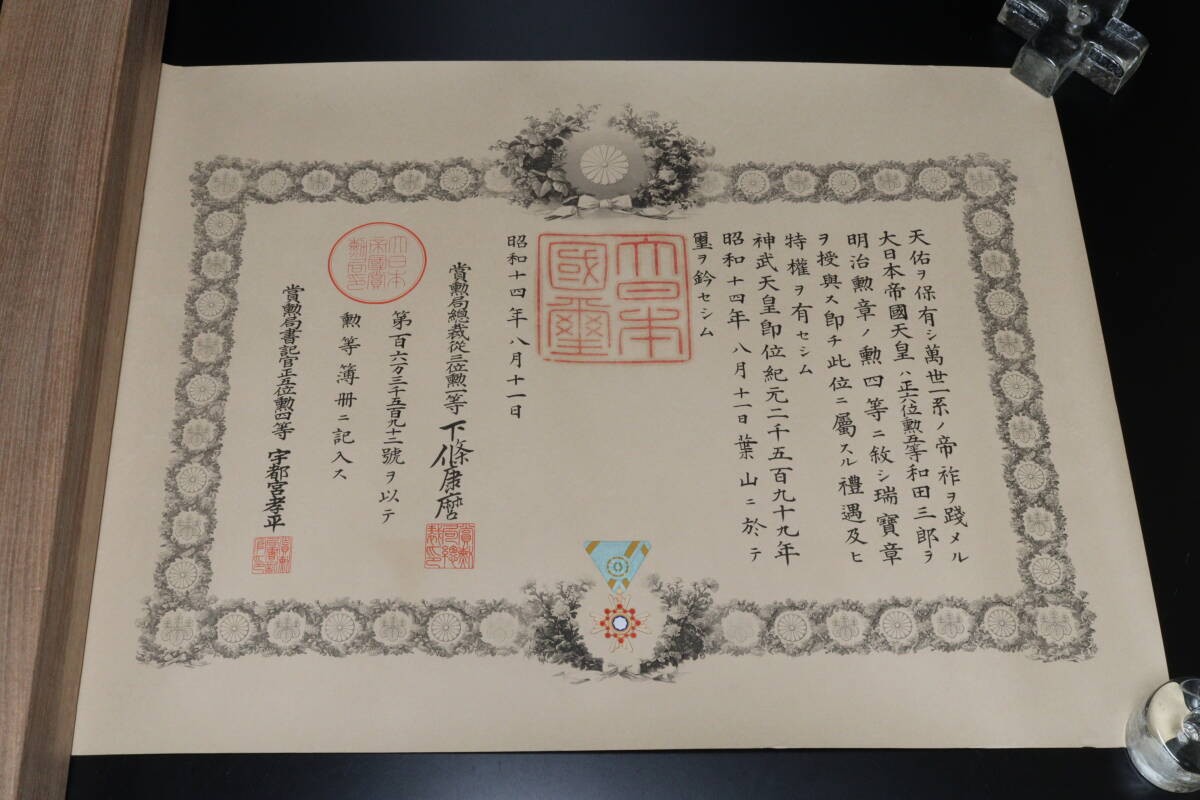 天佑ヲ保有シ萬世一系ノ帝祚ヲ踐メル
大日本帝國天皇ハ正六位勲五等和田三郎ヲ
明治勲章ノ勲四等ニ敘シ瑞寶章
ヲ授與ス即チ此位ニ屬スル禮遇及ヒ
特權ヲ有セシム
神武天皇即位紀元二千五百九十九年
昭和十四年八月十一日葉山ニ於テ
璽ヲ鈐セシム
大日本國璽
昭和十四年八月十一日
賞勲局總裁從三位勲一等下條康麿
賞勲局總裁印
第百六万三千五百九十二號ヲ以テ
勲等簿册ニ記入ス
大日本帝國賞勲局印
賞勲局書記官正五位勲四等宇都宮孝平